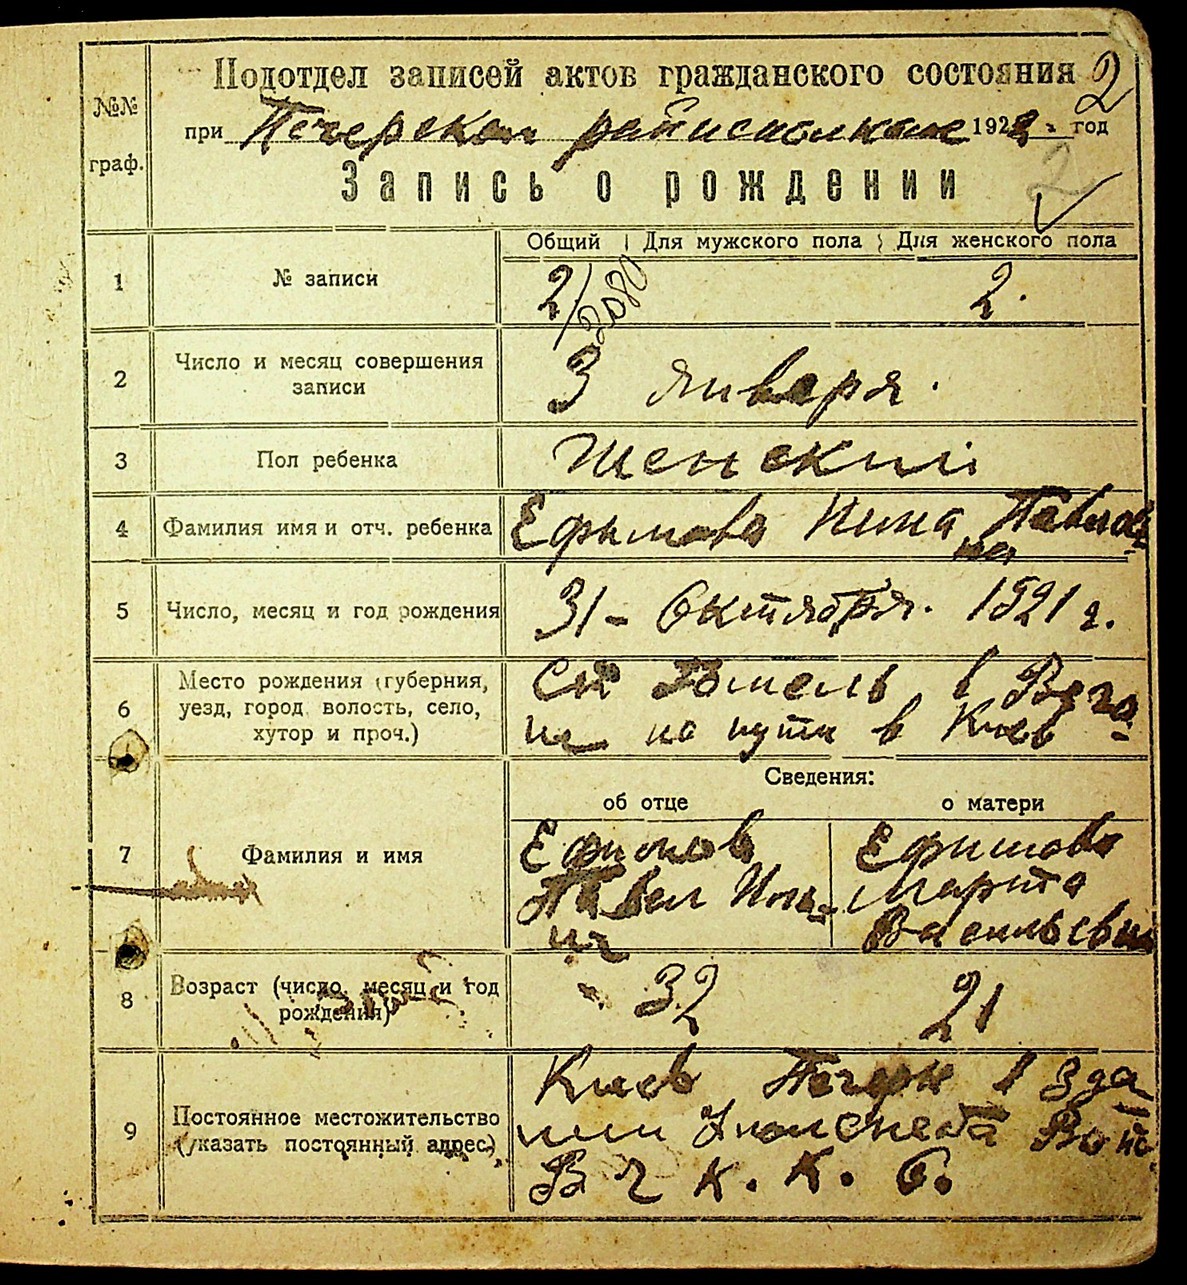 Подотдел записей актов гражданского состояния
2
№№ граф.
при Печерском райисполкоме 1922 год
2
Запись о рождении
Общий Для мужского пола Для женского пола
1 № записи 2/2080 2.
2 Число и месяц совершения
записи
3 января.
3 Пол ребенка Женский
4 Фамилия имя и отч. ребенка Ефимова Нина Павлов-
на
5 Число, месяц и год рождения 31 - Октября. 1921 г.
6 Место рождения (губерния,
уезд, город волость, село,
хутор и проч.)
Гомель в Ваго-
не на пути в Киев
Сведения:
об отце о матери
7 Фамилия и имя
Ефимов
Павел
Ефимова
Васильевна
8 Возраст (число, месяц и год
рождения)
32 21
9 Постоянное местожительство
(указать постоянный адрес)
Киев Печерск в зда-
нии Войс
В Ч К. К. О.